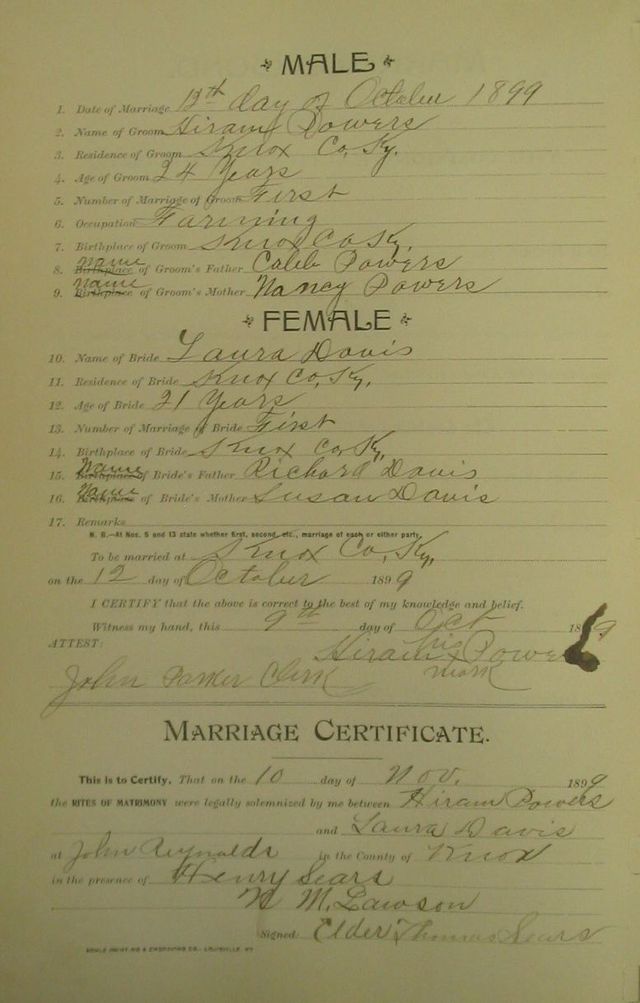 MALE
1. Date of Marriage 12th day of October 1899
2. Name of Groom Hiram Powers
3. Residence of Groom Knox Co, Ky.
4. Age of Groom 24 Years
5. Number of Marriage of Groom First
6. Occupation Farming
7. Birthplace of Groom Knox Co Ky,
8. Birthplace Name of Groom's Father Caleb Powers
9. Birthplace Name of Groom's Mother Nancy Powers
FEMALE
10. Name of Bride Laura Davis
11. Residence of Bride Knox Co, Ky,
12. Age of Bride 21 Years
13. Number of Marriage of Bride First
14. Birthplace of Bride Knox Co, Ky,
15. Birthplace Name of Bride's Father Richard Davis
16. Birthplace Name of Bride's Mother Susan Davis
17. Remarks
N. B.—At Nos. 5 and 13 state whether first, second, etc., marriage of each or either party.
To be married at Knox Co, Ky,
on the 12 day of October 1899
I CERTIFY that the above is correct to the best of my knowledge and belief.
Witness my hand, this 9th day of Oct 1899
ATTEST: Hiram his Powers
John Parker Clerk mark
MARRIAGE CERTIFICATE.
This is to Certify, That on the 10 day of Nov. 1899
the RITES OF MATRIMONY were legally solemnized by me between Hiram Powers
and Laura Davis
at John Reynolds in the County of Knox
in the presence of Henry Sears
M. Lawson
Signed: Elder Thomas Sears